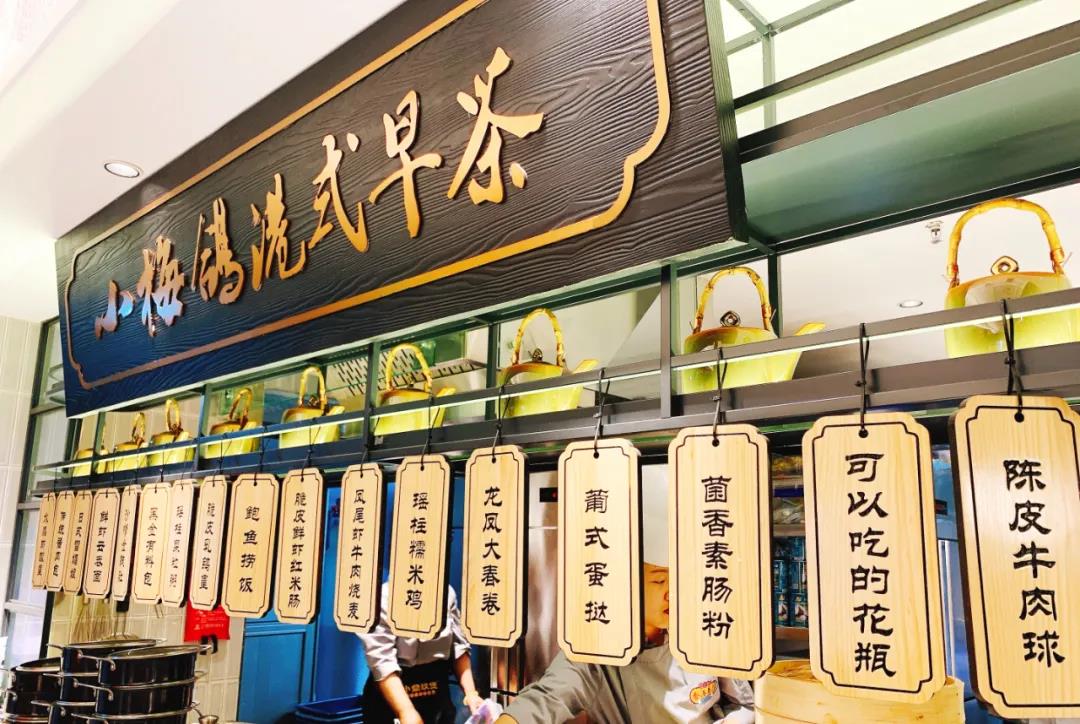 小梅鸽港式早茶
鲜虾云吞面
脆皮乳鸽皇
鲍鱼捞饭
脆皮鲜虾红米肠
凤尾虾牛肉烧麦
瑶柱糯米鸡
龙凤大春卷
葡式蛋挞
菌香素肠粉
可以吃的花瓶
陈皮牛肉球